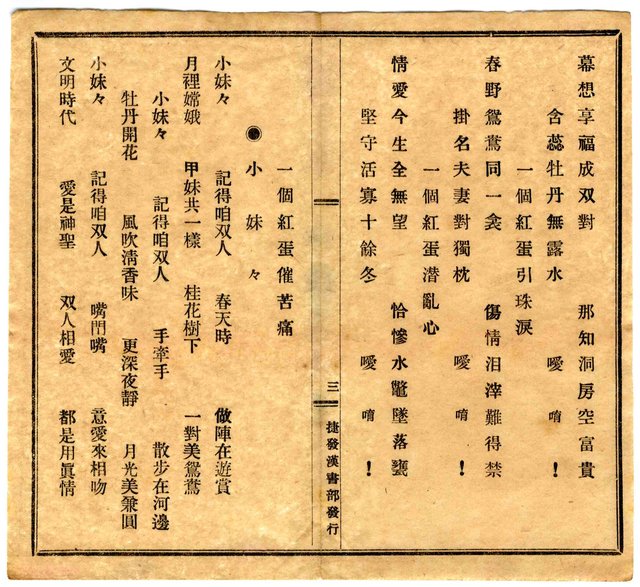 幕想享福成双對　那知洞房空富貴
含蕊牡丹無露水　噯　唷　！
一個紅蛋引珠淚
春野鴛鴦同一衾　傷情泪滓難得禁
掛名夫妻對獨枕　噯　唷　！
一個紅蛋潜亂心
情愛今生全無望　恰慘水鼈墜落甕
堅守活寡十餘冬　噯　唷　！
三
捷發漢書部發行
一個紅蛋催苦痛
●小妹々
小妹々　記得咱双人　春天時　做陣在遊賞
月裡嫦娥　甲妹共一樣　桂花樹下　一對美鴛鴦
小妹々　記得咱双人　手牽手　散步在河邊
牡丹開花　風吹清香味　更深夜靜　月光美兼圓
小妹々　記得咱双人　嘴鬥嘴　意愛來相吻
文明時代　愛是神聖　双人相愛　都是用眞情